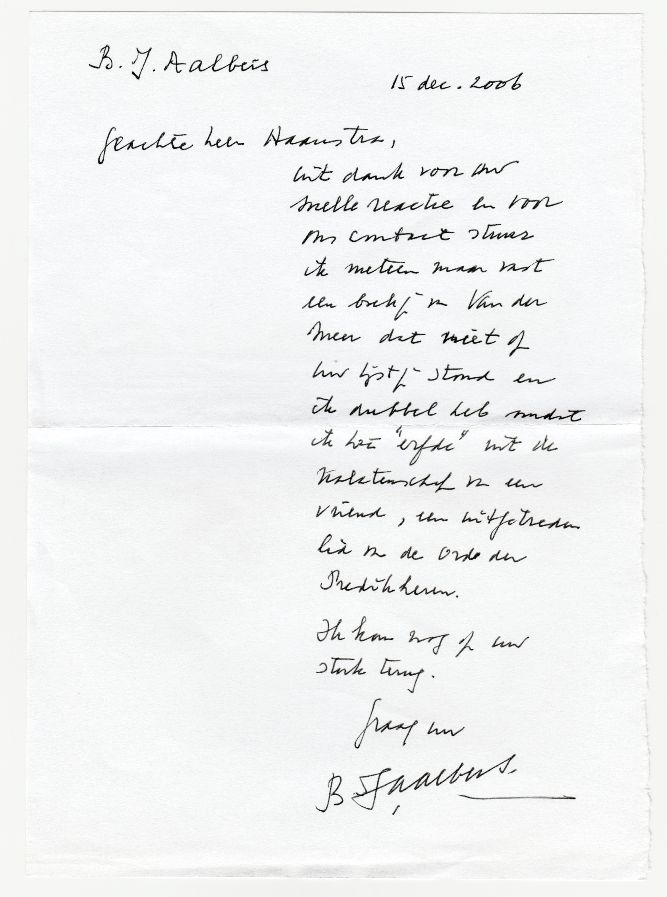 B. J. Aalbers
15 dec. 2006
Geachte heer Haanstra,
uit dank voor uw
snelle reactie en voor
ons contact stuur
ik meteen maar vast
een boekje van Van der
Meer dat niet op
uw lijstje stond en
ik dubbel heb omdat
ik het "erfde" uit de
nalatenschap van een
vriend, een uitgetreden
lid van de Orde der
Predikheren.
Ik kom nog op uw
stuk terug.
Graag uw
B. J. Aalbers.